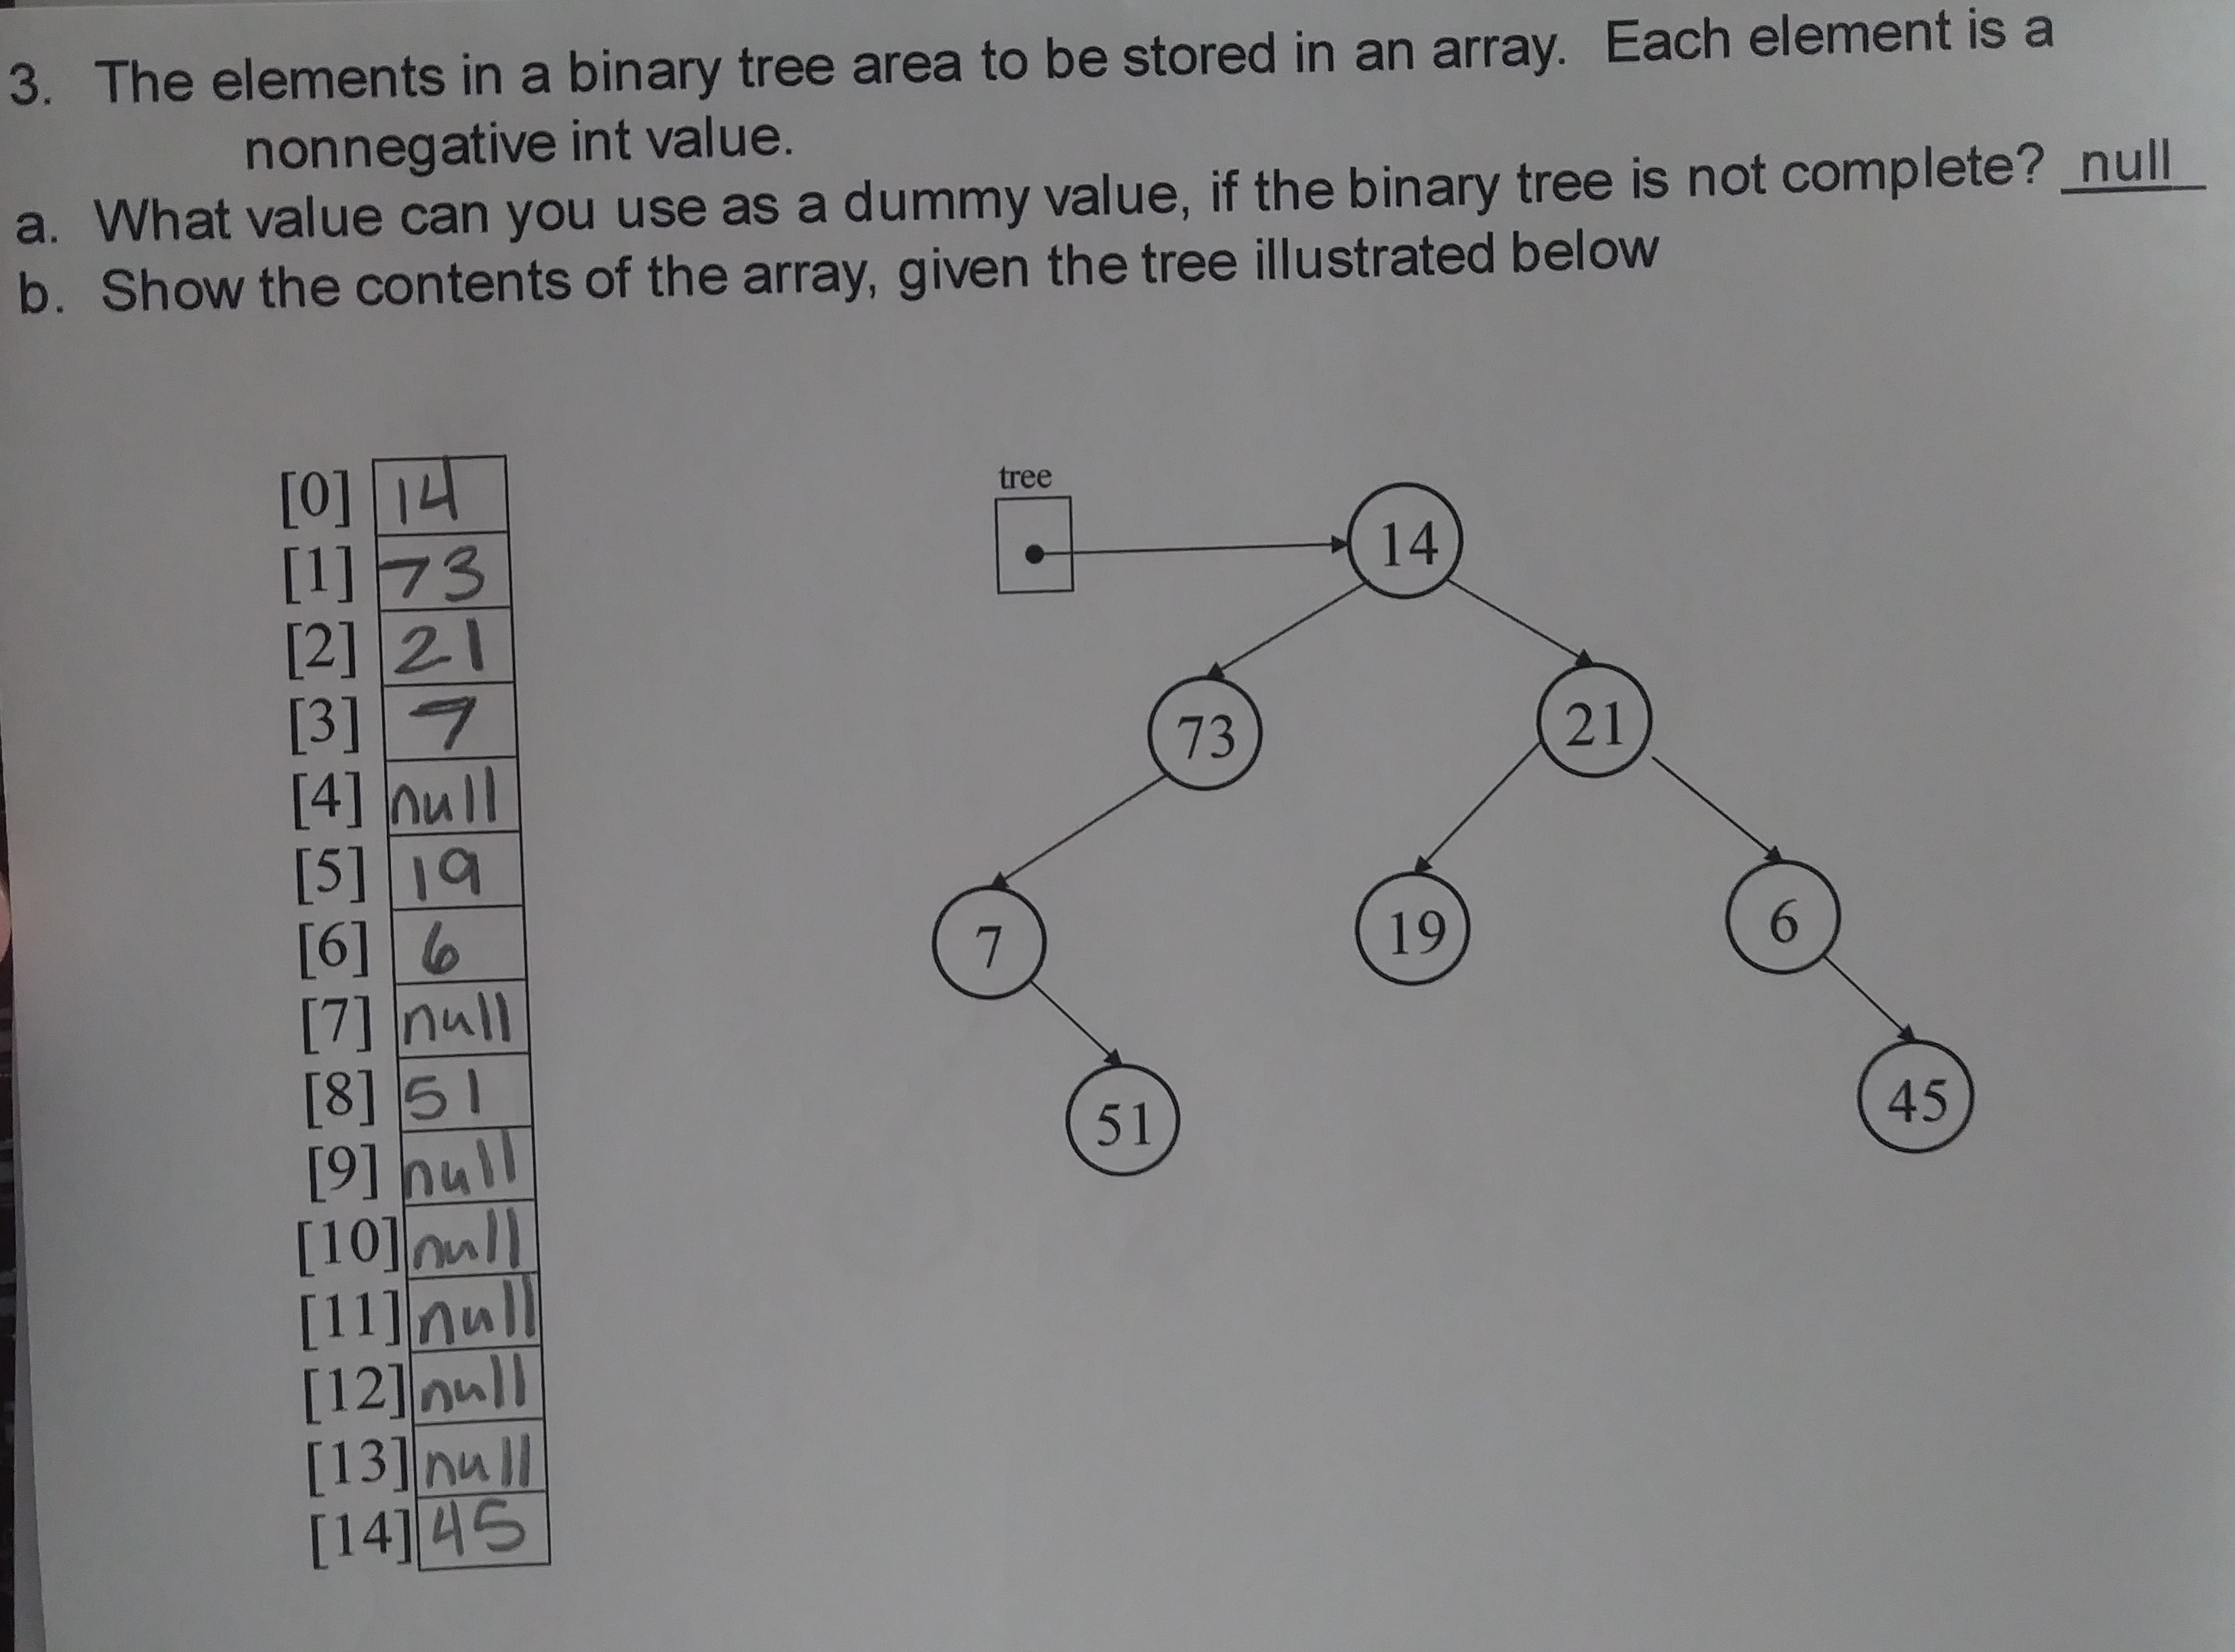 3. The elements in a binary tree area to be stored in an array. Each element is a
nonnegative int value.
a. What value can you use as a dummy value, if the binary tree is not complete? null
b. Show the contents of the array, given the tree illustrated below
[0] 14
[1] 73
[2] 21
[3] 7
[4] null
[5] 19
[6] 6
[7] null
[8] 51
[9] null
[10] null
[11] null
[12] null
[13] null
[14] 45
tree
14
73
21
7
19
6
51
45